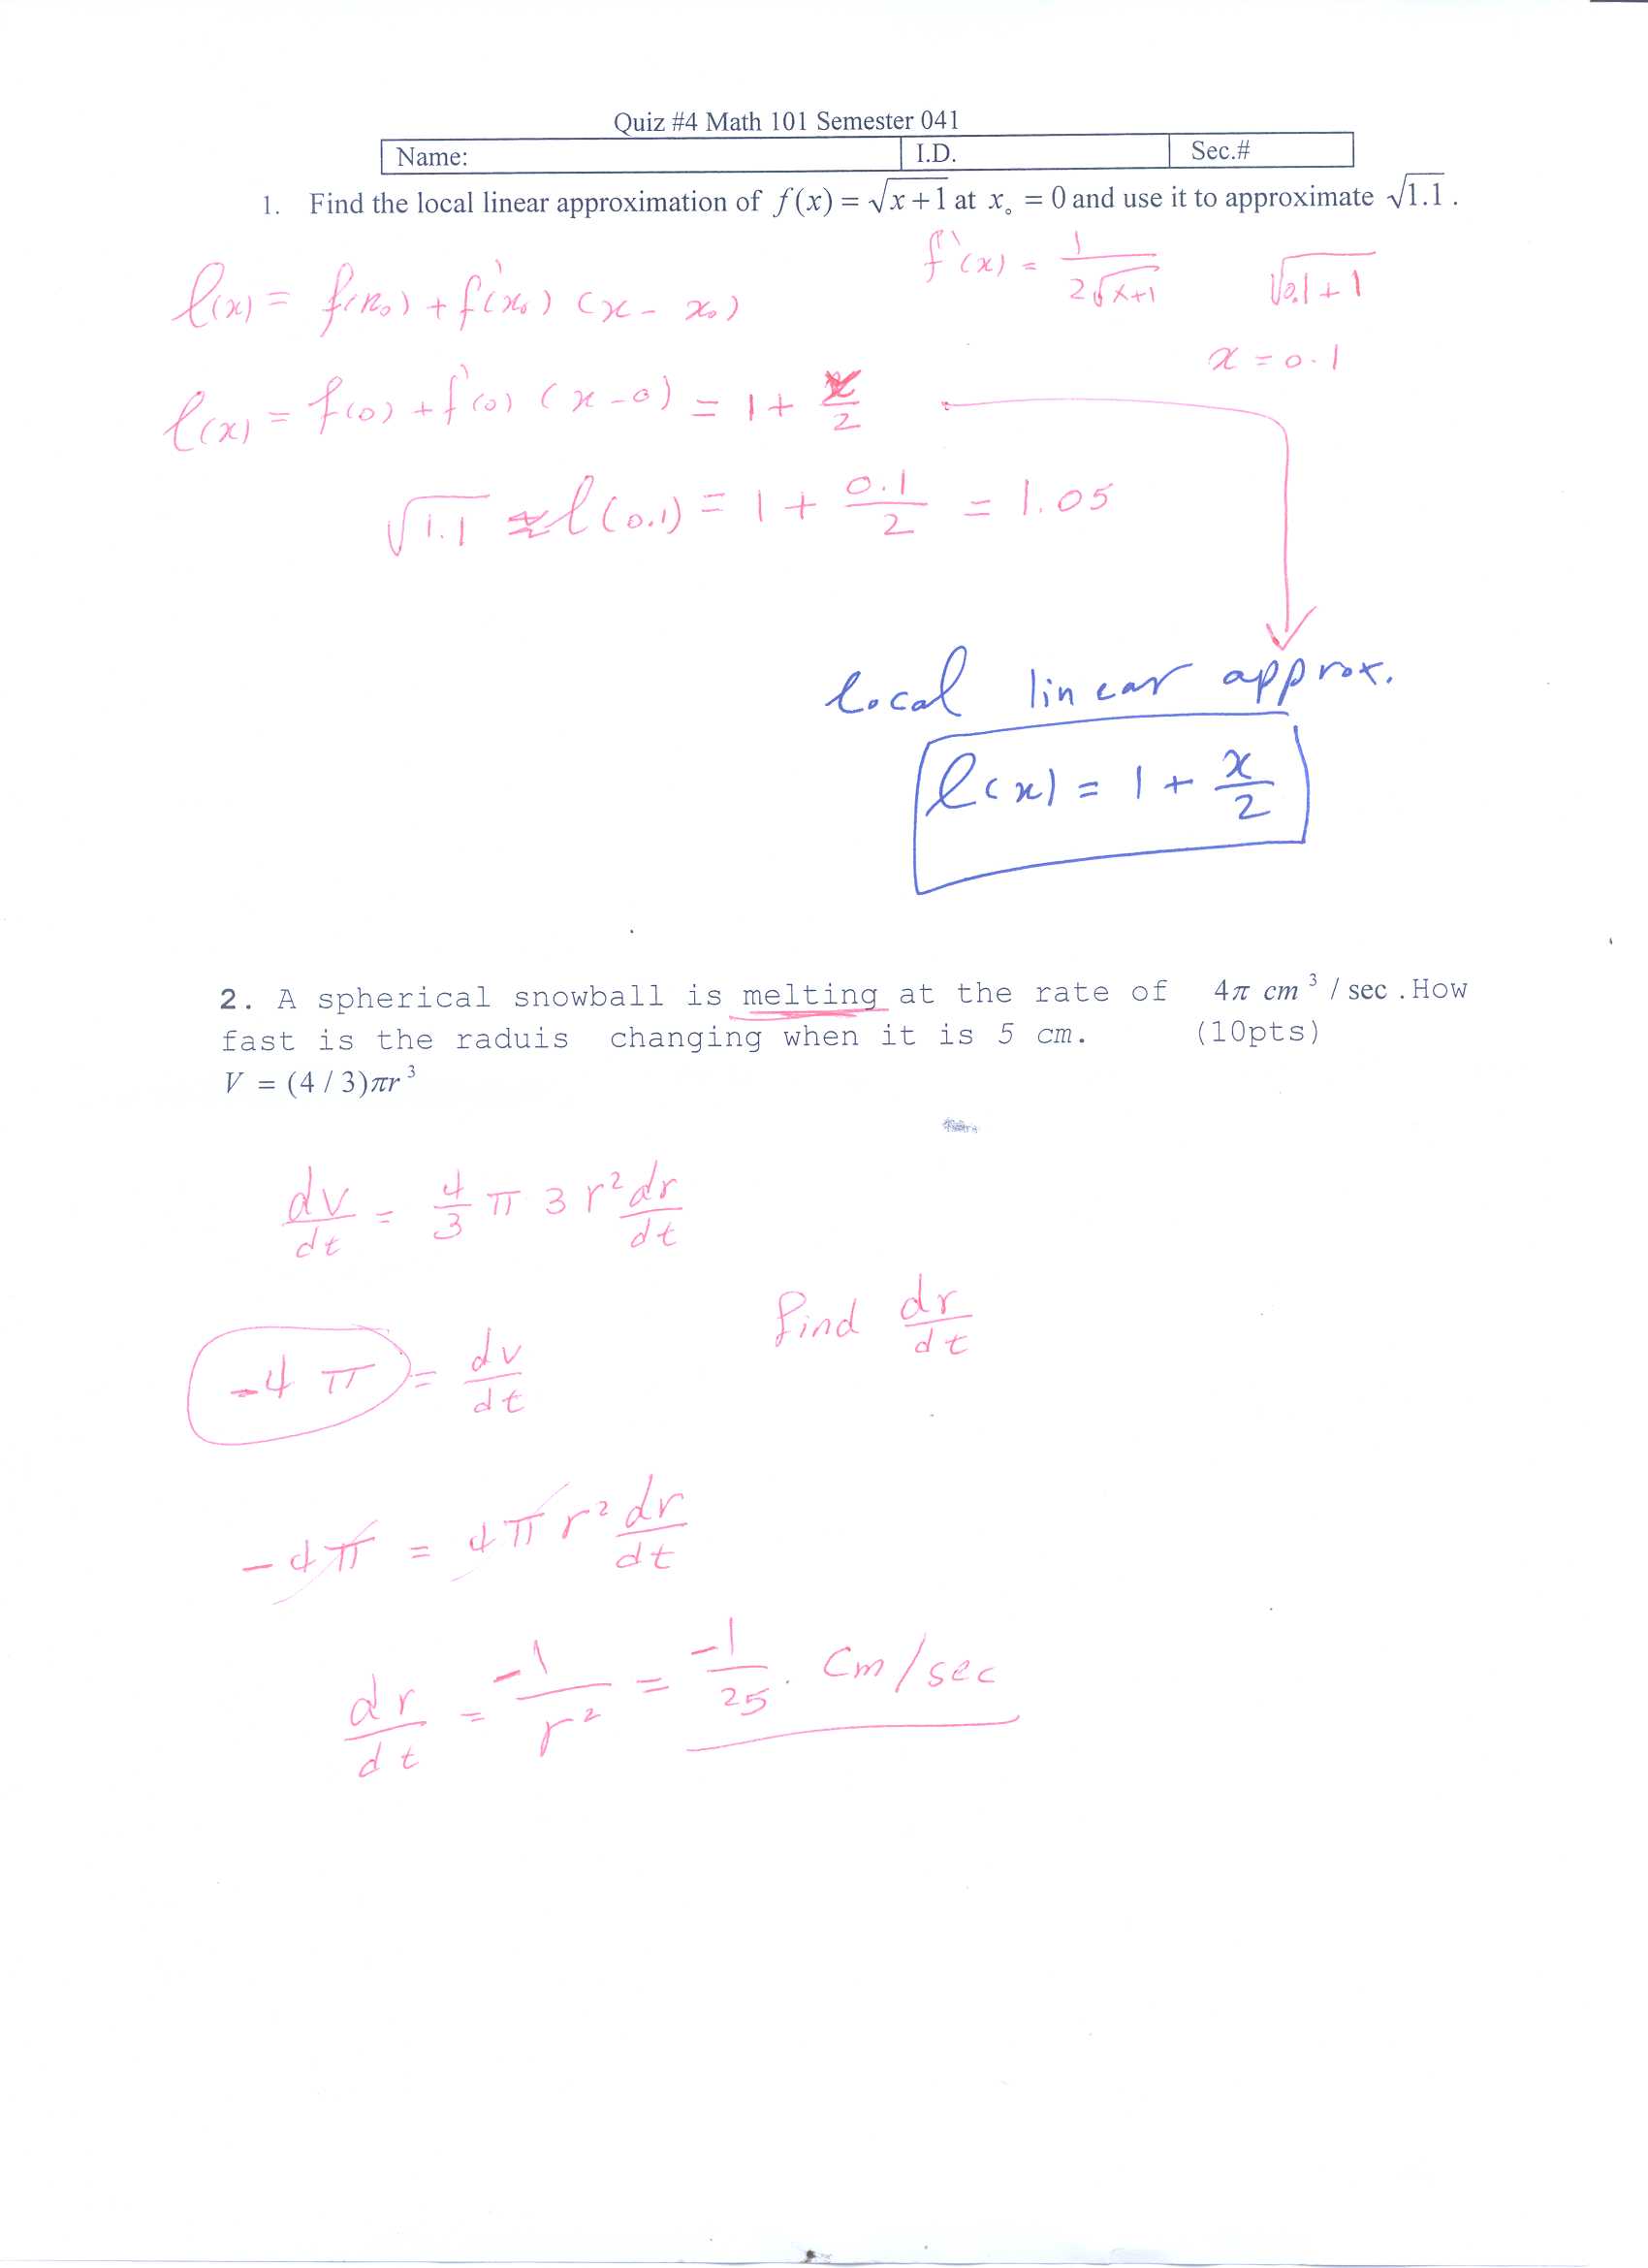 Quiz #4 Math 101 Semester 041
Name: I.D. Sec.#
1. Find the local linear approximation of f(x) = √(x+1) at x₀ = 0 and use it to approximate √1.1 .
f'(x) = 1/(2√(x+1)) √(0.1+1)
l(x) = f(x₀) + f'(x₀) (x - x₀)
x = 0.1
l(x) = f(0) + f'(0) (x-0) = 1 + x/2
√1.1 ≈ l(0.1) = 1 + 0.1/2 = 1.05
local linear approx.
l(x) = 1 + x/2
2. A spherical snowball is melting at the rate of 4π cm³ / sec .How
fast is the raduis changing when it is 5 cm. (10pts)
V = (4 / 3)πr³
dv/dt = 4/3 π 3 r² dr/dt
find dr/dt
-4 π = dv/dt
-4π = 4π r² dr/dt
dr/dt = -1/r² = -1/25 . cm/sec